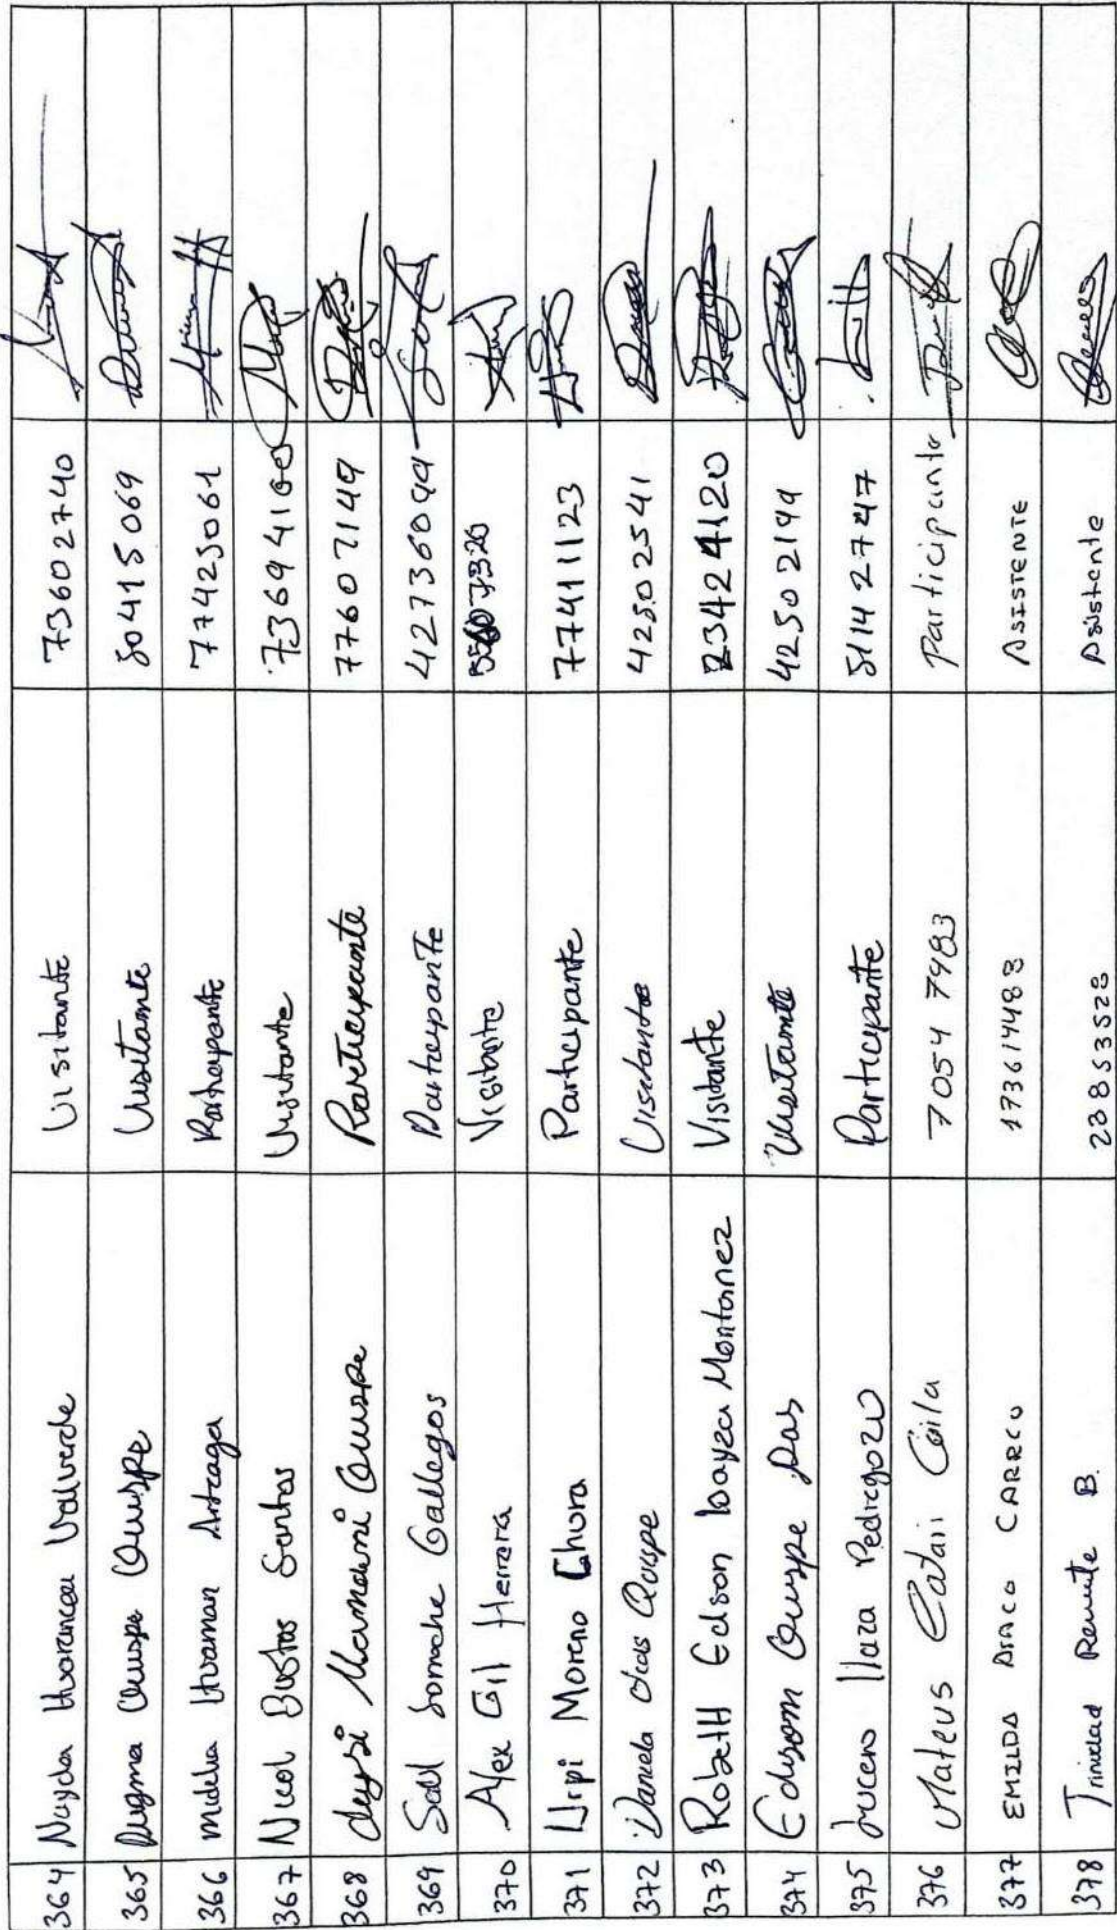 364 Nayda Huarancca Valverde Visitante 73602740
365 Dugma Quispe Quispe Visitante 80415069
366 Midelia Huaman Arteaga Participante 77425061
367 Nicol Bustos Santos Visitante 73694100
368 deysi Mamani Quispe Participante 77607149
369 Saul Somoche Gallegos Participante 42736099
370 Alex Gil Herrera Visitante
371 Urpi Moreno Chura Participante 77411123
372 Daniela dias Quispe Visitante 42502541
373 Robett Edson loayza Montanez Visitante 23424120
374 Edison Quispe Dias Visitante 42502199
375 Lucero llaza Pedregozo Participante 51142747
376 Mateus Catari Coila 70547483 Participante
377 EMILDA CARRCO 17361448 ASISTENTE
378 Trinidad B. 28853528 Asistente